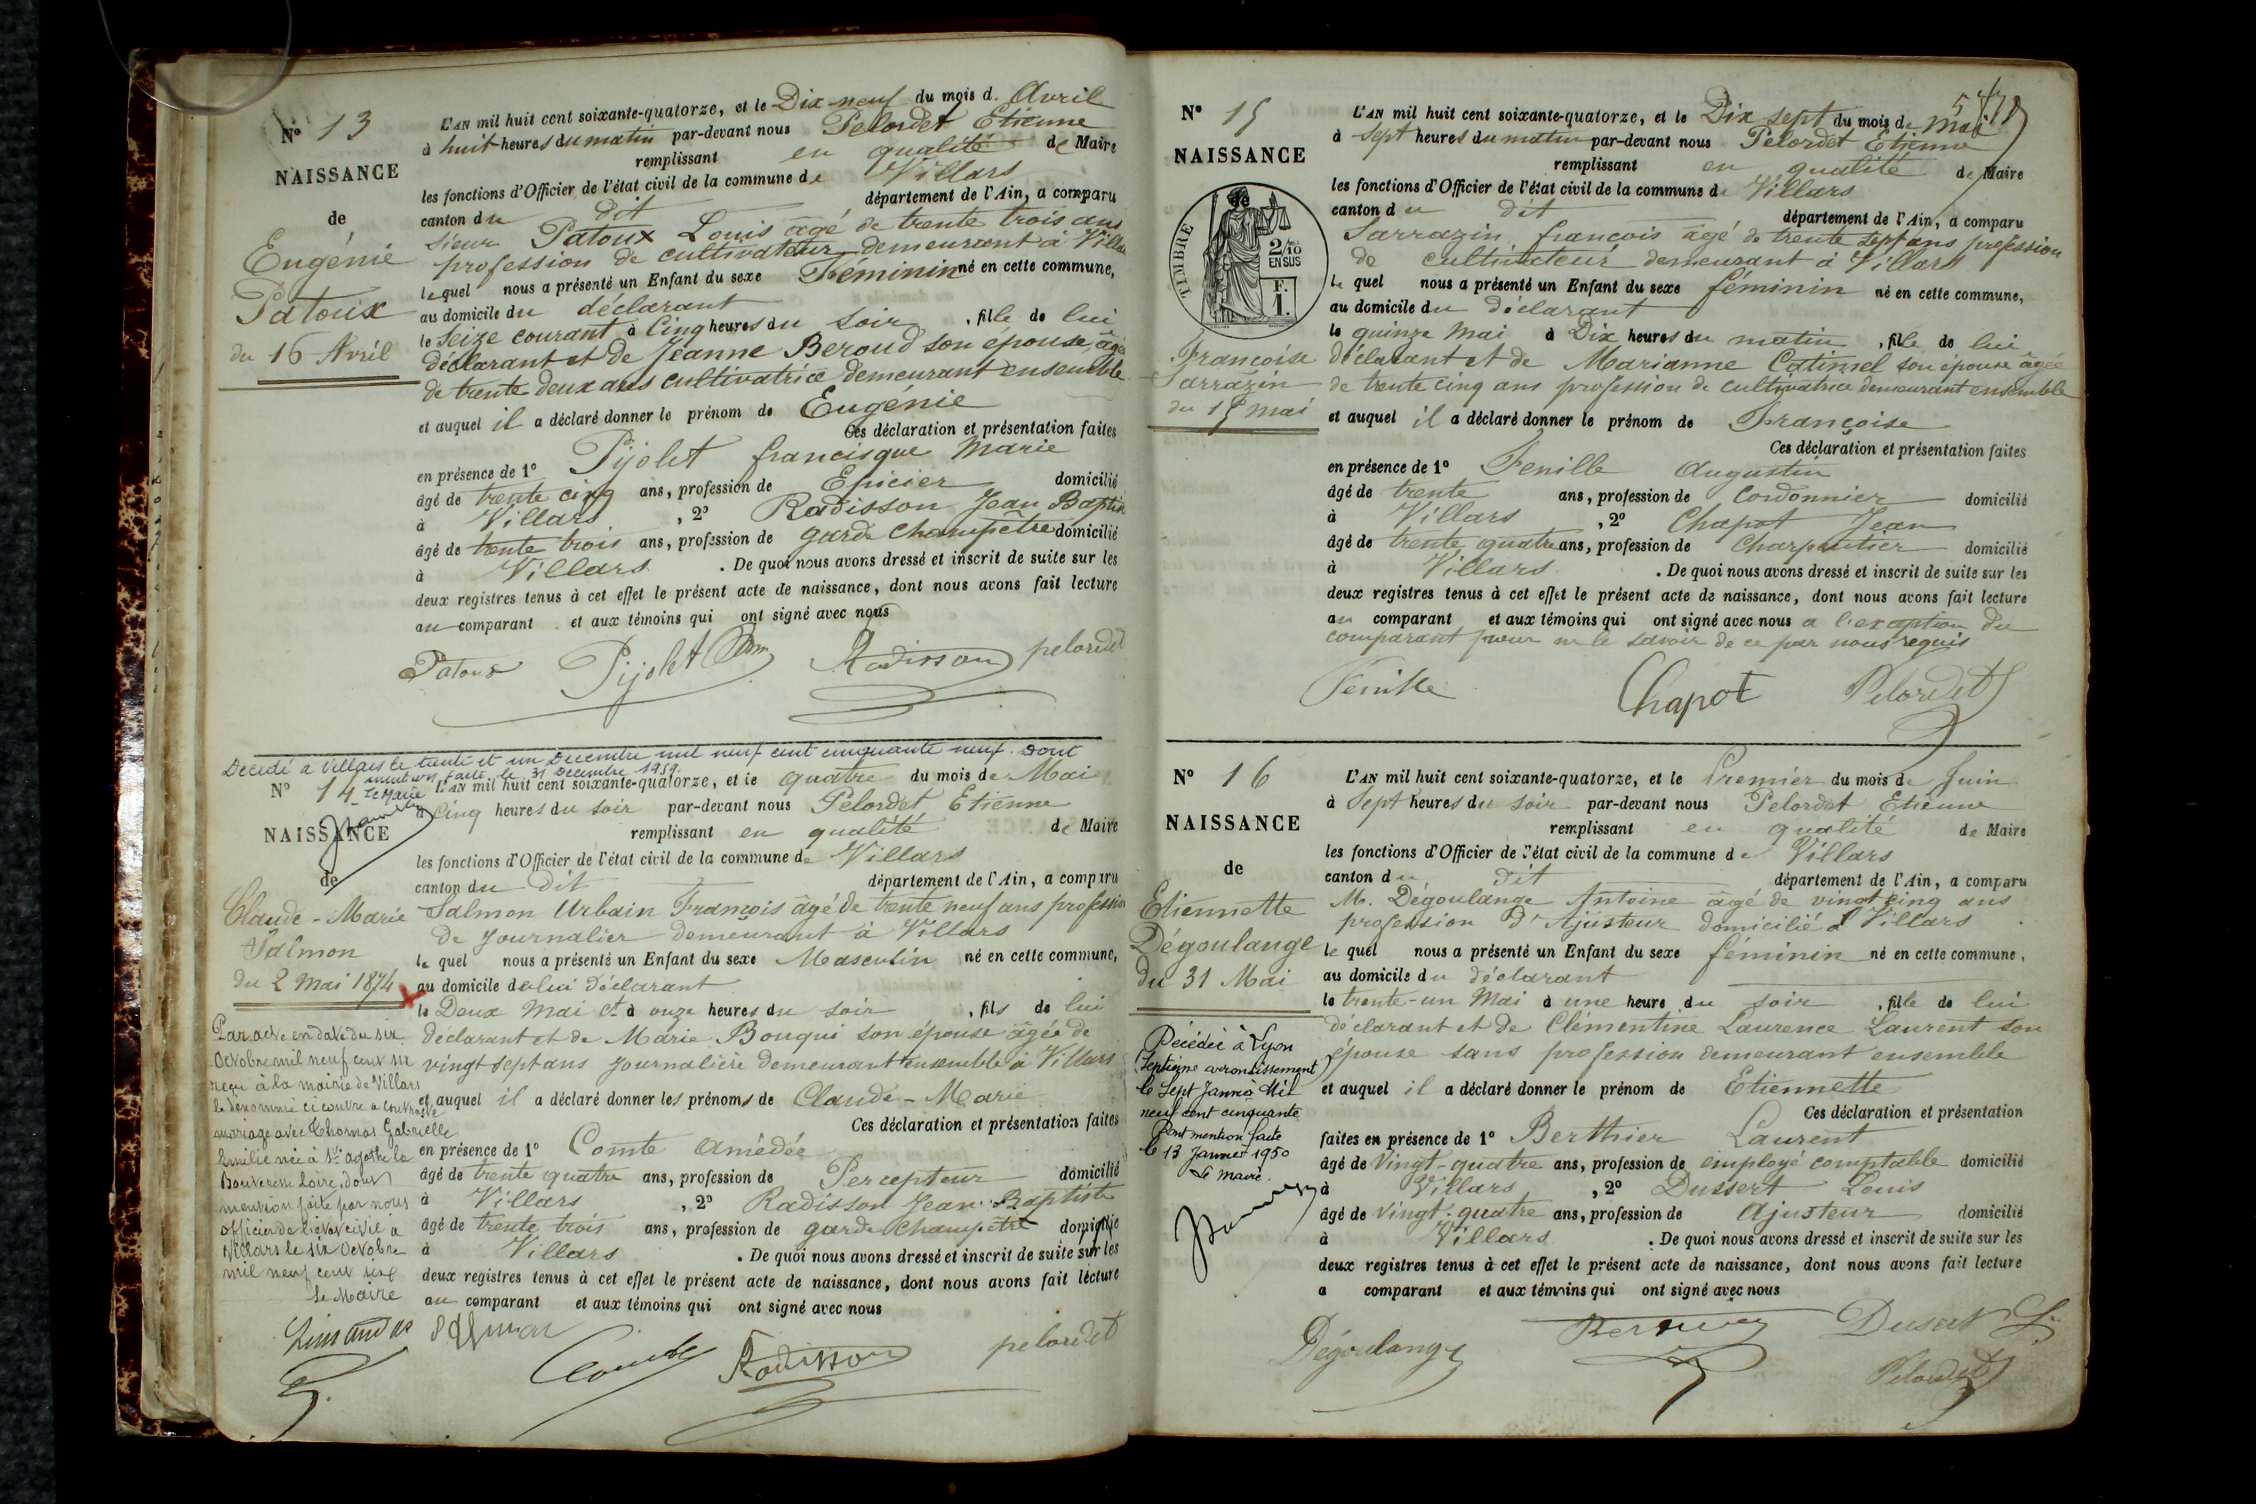 N° 13
NAISSANCE
de
Eugénie
Patoux
du 16 Avril
L'AN mil huit cent soixante-quatorze, et le Dix-neuf du mois d. Avril
à huit heures du matin par-devant nous Pelordet Etienne
remplissant en qualité de Maire
les fonctions d'Officier de l'état civil de la commune de Villars
canton du dit département de l'Ain, a comparu
sieur Patoux Louis âgé de trente trois ans
profession de cultivateur demeurant à Villars
lequel nous a présenté un Enfant du sexe Féminin né en cette commune,
au domicile du déclarant
le Seize courant à Cinq heures du soir, fille de lui
déclarant et de Jeanne Beroud son épouse, âgée
de trente deux ans cultivatrice demeurant ensemble
et auquel il a déclaré donner le prénom de Eugénie
Ces déclaration et présentation faites
en présence de 1° Pijolet francisque Marie
âgé de trente cinq ans, profession de Epicier domicilié
à Villars, 2° Radisson Jean Baptiste
âgé de trente trois ans, profession de garde Champêtre domicilié
à Villars. De quoi nous avons dressé et inscrit de suite sur les
deux registres tenus à cet effet le présent acte de naissance, dont nous avons fait lecture
au comparant et aux témoins qui ont signé avec nous
Patoux Pijolet Radisson pelordet
Décédé à Villars le trente et un Decembre mil neuf cent cinquante neuf. Dont
mention faite le 31 Decembre 1959.
Le Maire
N° 14
NAISSANCE
de
Claude-Marie
Salmon
du 2 Mai 1874
L'AN mil huit cent soixante-quatorze, et le quatre du mois de Mai
à Cinq heures du soir par-devant nous Pelordet Etienne
remplissant en qualité de Maire
les fonctions d'Officier de l'état civil de la commune de Villars
canton du dit département de l'Ain, a comparu
Salmon Urbain François âgé de trente neuf ans profession
de journalier demeurant à Villars
le quel nous a présenté un Enfant du sexe Masculin né en cette commune,
au domicile de lui déclarant
le Deux Mai ct à onze heures du soir, fils de lui
déclarant et de Marie Bouqui son épouse âgée de
vingt sept ans journalière demeurant ensemble à Villars
et auquel il a déclaré donner les prénoms de Claude-Marie
Ces déclaration et présentation faites
en présence de 1° Comte Amédée
âgé de trente quatre ans, profession de Percepteur domicilié
à Villars, 2° Radisson Jean-Baptiste
âgé de trente trois ans, profession de garde Champêtre domicilié
à Villars. De quoi nous avons dressé et inscrit de suite sur les
deux registres tenus à cet effet le présent acte de naissance, dont nous avons fait lecture
au comparant et aux témoins qui ont signé avec nous
Par acte en date du six
Octobre mil neuf cent six
reçu à la mairie de Villars
le dénommé ci contre a contracté
mariage avec Thomas Gabrielle
Emilie née à Ste Agathe la
Bouteresse Loire, dont
mention faite par nous
officier de l'état civil à
Villars le six Octobre
mil neuf cent six
Le Maire
Salmon Comte Radisson pelordet
N° 15
NAISSANCE
TIMBRE
2/10
EN SUS
F.
1.
Françoise
Sarrazin
du 15 mai
L'AN mil huit cent soixante-quatorze, et le Dix sept du mois de Mai
à sept heures du matin par-devant nous Pelordet Etienne
remplissant en qualité de Maire
les fonctions d'Officier de l'état civil de la commune de Villars
canton du dit département de l'Ain, a comparu
Sarrazin françois âgé de trente sept ans profession
de cultivateur demeurant à Villars
le quel nous a présenté un Enfant du sexe féminin né en cette commune,
au domicile du déclarant
le quinze Mai à Dix heures du matin, fille de lui
déclarant et de Marianne Catinel son épouse âgée
de trente cinq ans profession de cultivatrice demeurant ensemble
et auquel il a déclaré donner le prénom de Françoise
Ces déclaration et présentation faites
en présence de 1° Fenille Augustin
âgé de trente ans, profession de Cordonnier domicilié
à Villars, 2° Chapot Jean
âgé de trente quatre ans, profession de Charpentier domicilié
à Villars. De quoi nous avons dressé et inscrit de suite sur les
deux registres tenus à cet effet le présent acte de naissance, dont nous avons fait lecture
au comparant et aux témoins qui ont signé avec nous a l'exception du
comparant pour ne le savoir de ce par nous requis
Fenille Chapot Pelordet
N° 16
NAISSANCE
de
Etiennette
Dégoulange
du 31 Mai
L'AN mil huit cent soixante-quatorze, et le Premier du mois de Juin
à Sept heures du soir par-devant nous Pelordet Etienne
remplissant en qualité de Maire
les fonctions d'Officier de l'état civil de la commune de Villars
canton du dit département de l'Ain, a comparu
M. Dégoulange Antoine âgé de vingt cinq ans
profession d'Ajusteur domicilié à Villars
le quel nous a présenté un Enfant du sexe féminin né en cette commune,
au domicile du déclarant
le trente-un Mai à une heure du soir, fille de lui
déclarant et de Clémentine Laurence Laurent son
épouse sans profession demeurant ensemble
et auquel il a déclaré donner le prénom de Etiennette
Ces déclaration et présentation
faites en présence de 1° Berthier Laurent
âgé de Vingt-quatre ans, profession de employé comptable domicilié
à Villars, 2° Dussert Louis
âgé de Vingt-quatre ans, profession de Ajusteur domicilié
à Villars. De quoi nous avons dressé et inscrit de suite sur les
deux registres tenus à cet effet le présent acte de naissance, dont nous avons fait lecture
a comparant et aux témoins qui ont signé avec nous
Décédée à Lyon
(Septième arrondissement)
le Sept Janvier Mil
neuf cent cinquante
Dont mention faite
le 13 Janvier 1950
Le Maire.
Dégoulange Dusert L. Pelordet